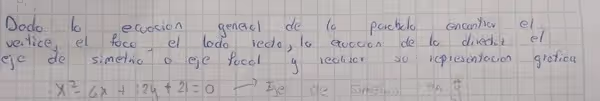 Dado la ecuacion general de la parabola encontrar el
vertice, el foco, el lado recto, la ecuacion de la directriz el
eje de simetria o eje focal y realizar su representacion grafica
x² - 6x + 12y + 21 = 0 → Eje de simetria en y